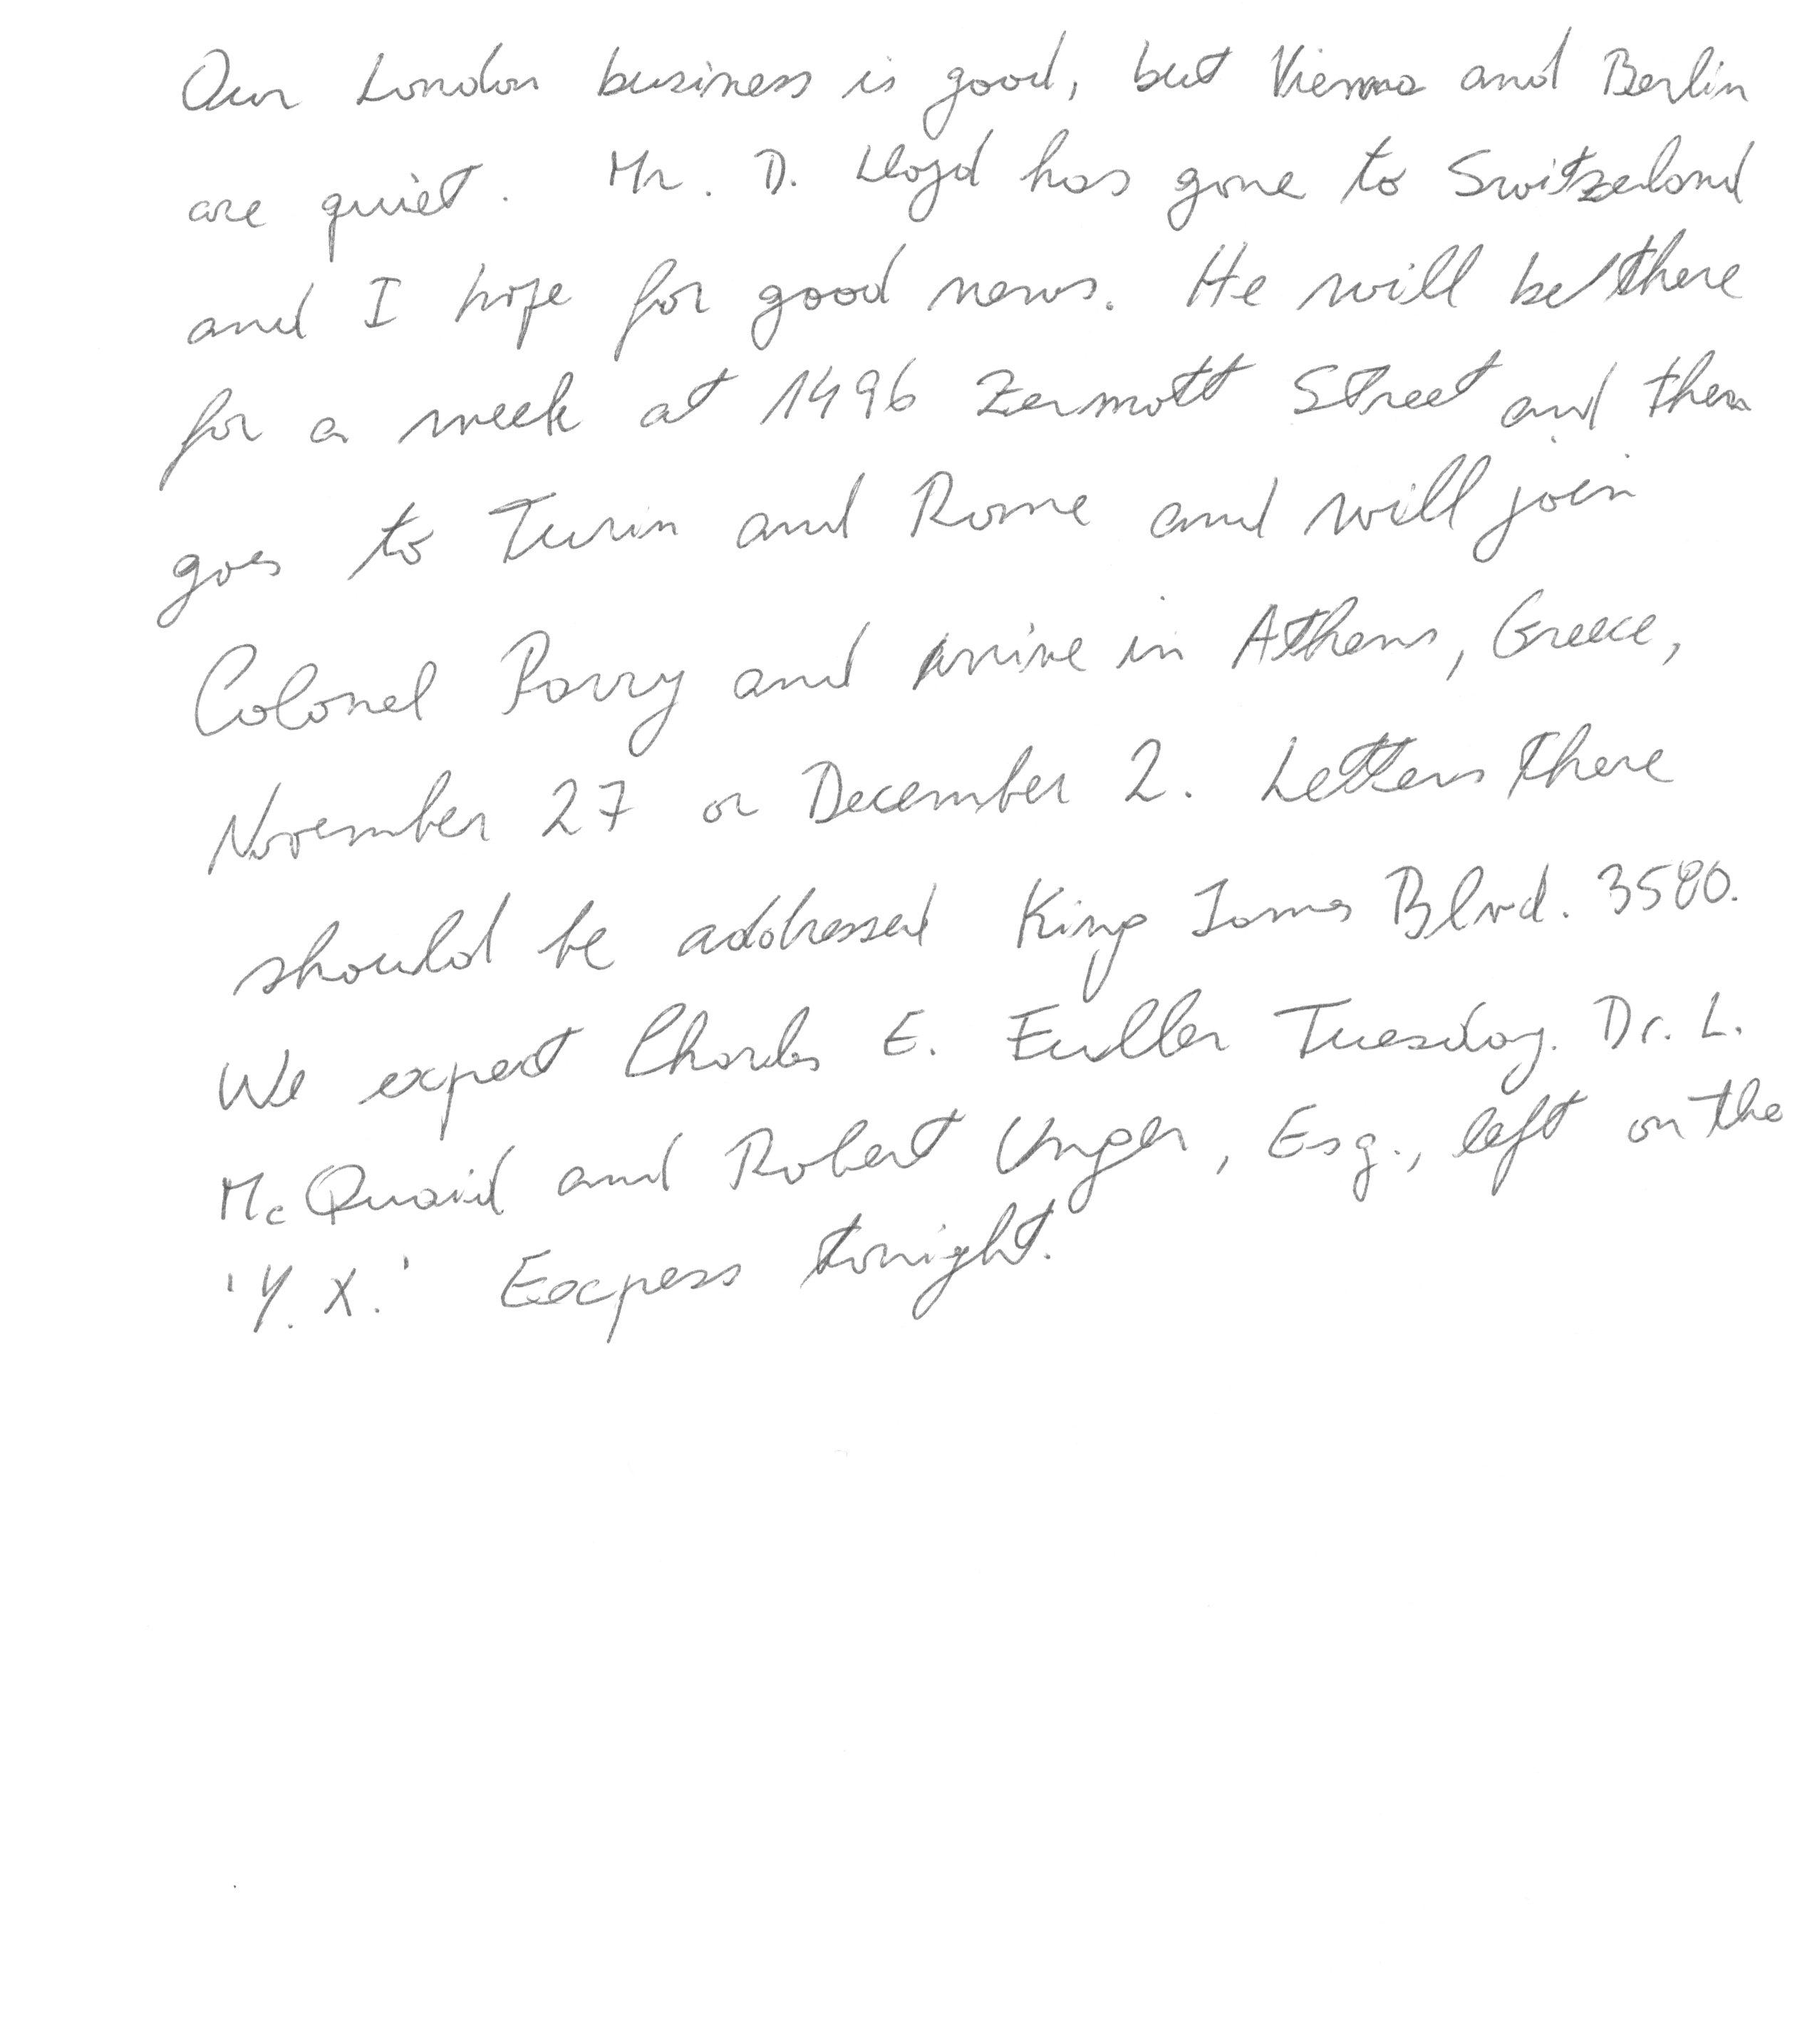 Our London business is good, but Vienna and Berlin
are quiet. Mr. D. Lloyd has gone to Switzerland
and I hope for good news. He will be there
for a week at 1496 Zermott Street and then
goes to Turin and Rome and will join
Colonel Parry and arrive in Athens, Greece,
November 27 or December 2. Letters there
should be addressed King James Blvd. 3580.
We expect Charles E. Fuller Tuesday. Dr. L.
McQuaid and Robert Unger, Esq., left on the
'Y. X.' Expess tonight.